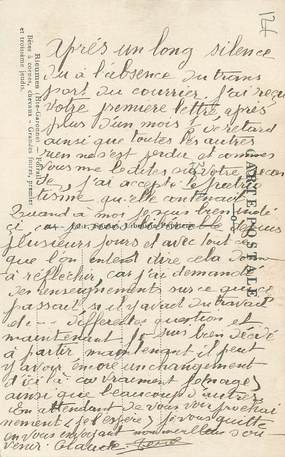 Après un long silence
dû à l'absence du trans
port du courrier, j'ai reçu
votre première lettre, après
plus d'un mois de retard
ainsi que toutes les autres
rien n'est perdu et comme
vous me le dites sur votre
j'ai accepté le
qu'elle contenait
Quand à moi je suis bien
ci
plusieurs jours et avec tout ce
que l'on entend dire cela
à réfléchir, car j'ai demandé
des renseignements sur ce qui ce
passait, s'il y avait du travail
et --- différentes question et
maintenant je suis bien décidé
à partir maintenant, il peut
y avoir encore un changement
d'ici là car vraiment
ainsi que beaucoup d'autres
En attendant de vous voir prochai
nement (je l'espère) je vous quitte
en vous envoyant mon meilleur sou
venir. Claude
CARTE POSTALE
Rieumes (Hte-Garonne) — Foirail
Bêtes à cornes, chevaux - Grandes foires, premier
et troisième jeudis.